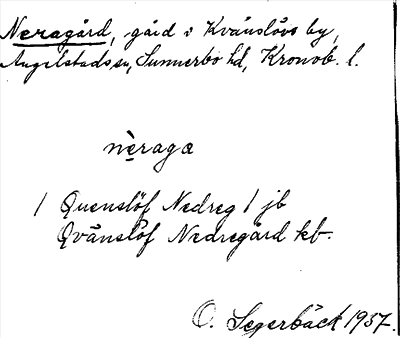 Neragård, gård i Kvänslövs by,
Angelstads sn, Sunnerbo hd, Kronob. l.
nèraga
/ Quenslöf Nedreg / jb
Qvänslöf Nedregård kb.
O. Segerbäck 1937.